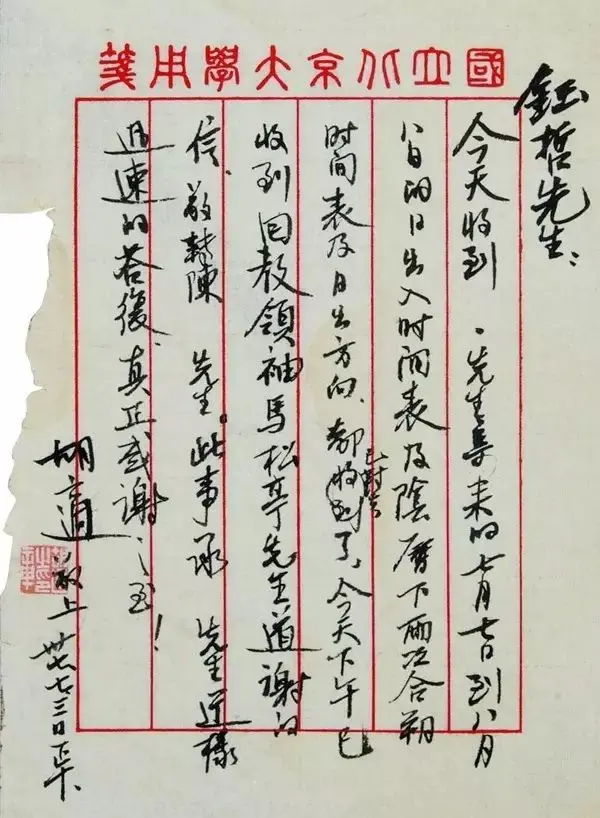 國立北京大學用箋
鈺哲先生：
今天收到 先生寄来的七月七日到八月
八日的日出入时间表及陰曆下兩次合朔
时间表及日出方向、都收到了，今天下午已
收到回教領袖馬松亭先生道謝的
信、敬轉陳 先生。此事承 先生这樣
迅速的答復、真正感謝之至！
胡適敬上 卅七、七、三日正午